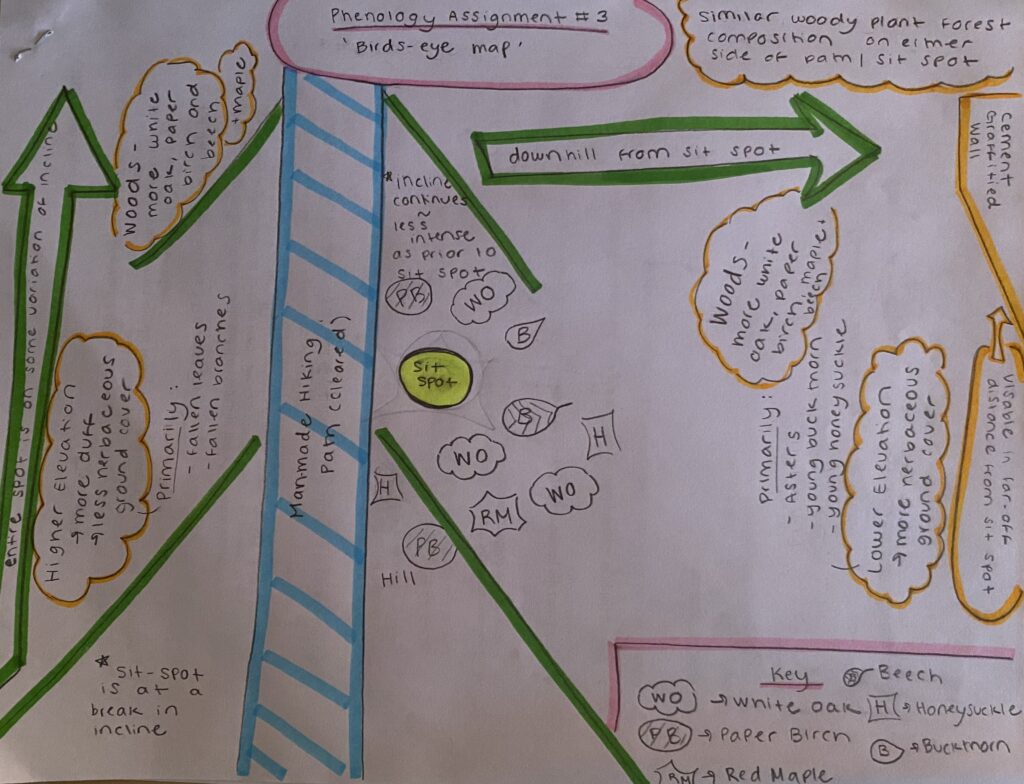 Phenology Assignment #3
'Birds-eye map'
Similar woody plant forest
composition on either
side of path/sit spot
Woods -
more white
oak, paper
birch and
beech
+maple
downhill from sit spot
Cement
Graffitied
Wall
entire spot is on some variation of incline
* incline
continues
~
less
intense
as prior to
sit spot
PB
WO
B
Sit
Spot
B
H
WO
WO
H
RM
PB
Hill
Man-made Hiking
Path (cleared)
Higher Elevation
→ more duff
→ less herbaceous
ground cover
Primarily:
- fallen leaves
- fallen branches
Woods -
more white
oak, paper
birch, maple+
beech
Primarily:
- Asters
- young buckthorn
- young honeysuckle
Lower Elevation
→ more herbaceous
ground cover
visable in far-off
distance from sit spot
* Sit-spot
is at a
break in
incline
Key
WO → White oak
PB → Paper Birch
RM → Red Maple
B → Beech
H → Honeysuckle
B → Buckthorn